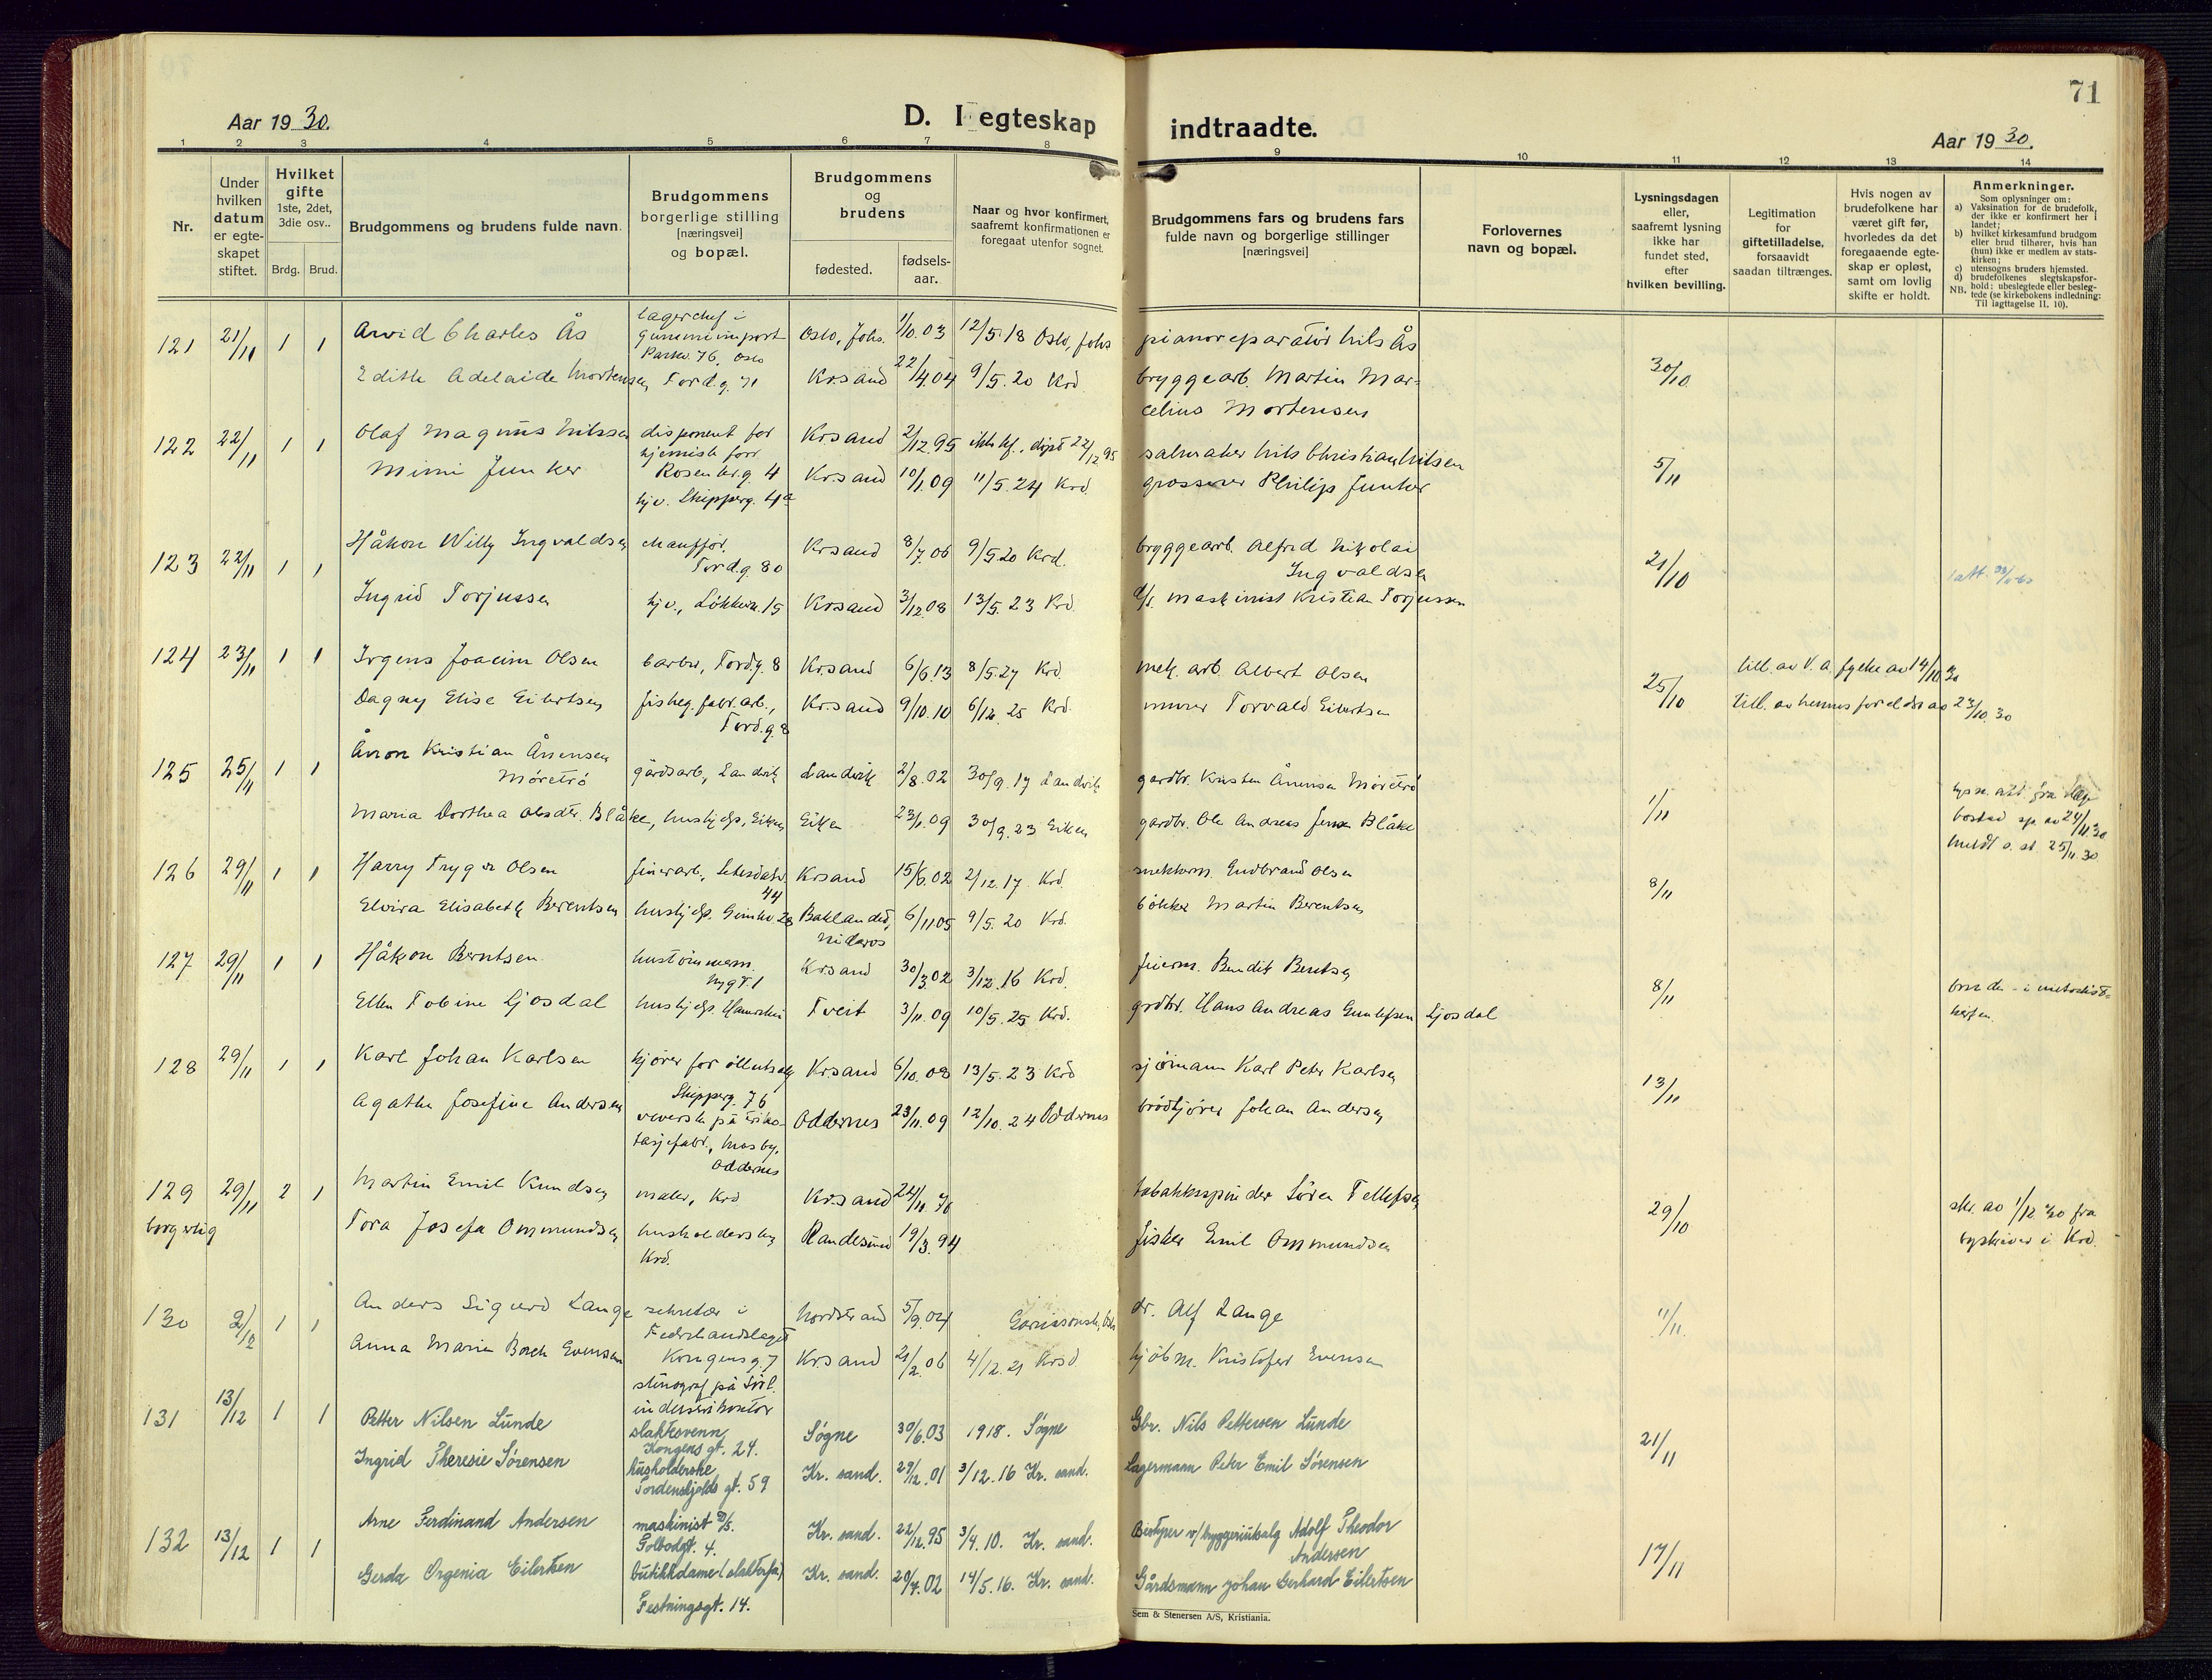 71
Aar 1930.
D. I egteskap indtraadte.
Aar 1930.
1 2 3 4 5 6 7 8 9 10 11 12 13 14
Nr.
Under hvilken datum er egte-skapet stiftet.
Hvilket gifte 1ste, 2det, 3die osv..
Brdg. Brud.
Brudgommens og brudens fulde navn.
Brudgommens borgerlige stilling [næringsvei] og bopæl.
Brudgommens og brudens
fødested. fødsels-aar.
Naar og hvor konfirmert, saafremt konfirmationen er foregaat utenfor sognet.
Brudgommens fars og brudens fars fulde navn og borgerlige stillinger [næringsvei]
Forlovernes navn og bopæl.
Lysningsdagen eller, saafremt lysning ikke har fundet sted, efter hvilken bevilling.
Legitimation for giftetilladelse, forsaavidt saadan tiltrænges.
Hvis nogen av brudefolkene har været gift før, hvorledes da det foregaaende egte-skap er opløst, samt om lovlig skifte er holdt.
Anmerkninger.
Som oplysninger om:
a) Vaksination for de brudefolk, der ikke er konfirmert her i landet;
b) hvilket kirkesamfund brudgom eller brud tilhører, hvis han (hun) ikke er medlem av stats-kirken;
c) utensogns bruders hjemsted.
d) brudefolkenes slegtskapsfor-hold: ubeslegtede eller besleg-tede (se kirkebokens indledning: Til iagttagelse II. 10).
NB.
121 21/11 1 1 Arvid Charles Ås lagerchef i gummiimport Parkv. 76, Oslo Oslo, Johs. 1/10.03 12/5.18 Oslo, Johs pianoreparatör Nils Ås
Edith Adelaide Mortensen Tord.g. 71 Krsand 22/4.04 9/5.20 Krd. bryggearb. Martin Mar-celius Mortensen 30/10
122 22/11 1 1 Olaf Magnus Nilssen disponent for kjemisk forr. Rosenkr.g. 4 Krsand 2/12.95 ikke kf., döpt 22/12 95 salmaker Nils Christian Nilsen
Mimi Junker hjv. Skipperg. 4a Kr.sand 10/1.09 11/5.24 Krd. grosserer Philip Junker 5/11
123 22/11 1 1 Håkon Willy Ingvaldsen chaufför. Tord.g. 80 Krsand 8/7.06 9/5.20 Krd. bryggearb. Alfred Nikolai Ingvaldsen
Ingrid Torjussen hjv., Lökkev. 15 Krsand 3/12.08 13/5.23 Krd. d/s. maskinist Kristian Torjussen 21/10
124 23/11 1 1 Irgens Joacim Olsen barber, Tord.g. 8 Krsand 6/6.13 8/5.27 Krd. mek. arb. Albert Olsen till. av V. a. fylke av 14/11 30
Dagny Elise Eilertsen fiskeg. fabr. arb., Tord.g. 8 Kr.sand 9/10.10 6/12.25 Krd. murer Torvald Eilertsen 25/10 till. av hennes foreldre av 23/10.30
125 25/11 1 1 Ånon Kristian Ånensen Möretrö gårdsarb., Landvik Landvik 2/8.02 30/9.17 Landvik gardbr. Kristen Ånensen Möretrö
Maria Dorthea Olsdtr. Blåke, hushjelp, Eiken Eiken 23/1.09 30/9.23 Eiken gardbr. Ole Andreas Jensen Blåke 1/11
126 29/11 1 1 Harry Trygve Olsen finerarb., Setesdalsv. 44 Krsand 15/6.02 2/12.17 Krd. snekkerm. Gudbrand Olsen
Elvira Elisabeth Berentsen hushjelp. Gimlev. 28 Baklandet, Nidaros 6/11 05 9/5.20 Krd. bökker Martin Berentsen 8/11
127 29/11 1 1 Håkon Berntsen hustömmerm. Nygt. 1 Krsand 30/3.02 3/12.16 Krd. feierm. Bendik Berntsen
Ellen Tobine Ljosdal hushjelp. Tveit 3/11.09 10/5.25 Krd. grdbr. Hans Andreas Gunlefsen Ljosdal 8/11 bruden i metodist-kirken.
128 29/11 1 1 Karl Johan Karlsen kjörer for öllutsalg Skipperg. 76 Krsand 6/10.08 13/5.23 Krd sjömann Karl Peter Karlsen
Agathe Josefine Andersen veverske på triko-tasjefabr., Mosby, Oddernes Oddernes 23/11.09 12/10.24 Oddernes brödkjörer Johan Andersen 13/11
129 borgerlig 29/11 2 1 Martin Emil Knudsen maler, Krd Kr.sand 24/11.76 tobakkspinder Sören Tellefsen
Tora Josefa Ommundsen husholderske, Krd. Randesund 19/3.94 fisker Emil Ommundsen 29/10 skr. av 1/12 30 fra byskriver i Krd.
130 2/12 1 1 Anders Sigurd Lange sekretær i Fedrelandslaget Kongensg. 7 Nordstrand 5/9.04 Garnisonsk, Oslo dr. Alf Lange
Anna Marie Bosch Evensen stenograf på Sörl. industrikontor Krsand 21/2.06 4/12.21 Krsd kjöbm. Kristofer Evensen 11/11.
131 13/12 1 1 Petter Nilsen Lunde slaktesvenn, Kongens gt. 24. Søgne 30/6.03 1918. Søgne Gbr. Nils Pettersen Lunde
Ingrid Theresie Sørensen husholderske Tordenskjolds gt. 59 Kr. sand. 29/12.01 3/12.16 Kr. sand. Lagermann Peter Emil Sørensen 21/11
132 13/12 1 1 Arne Ferdinand Andersen maskinist D/S. Kr. sand. 22/12.95 3/4.10. Kr. sand. Bestyrer v/bryggeriutsalg Adolf Theodor Andersen
Gerda Orgenia Eilertsen butikkdame (slakterfo) Festningsgt. 14. Kr. sand. 20/7.02 14/5.16. Kr. sand. Gårdsmann Johan Gerhard Eilertsen 17/11
Sem & Stenersen A/S, Kristiania.